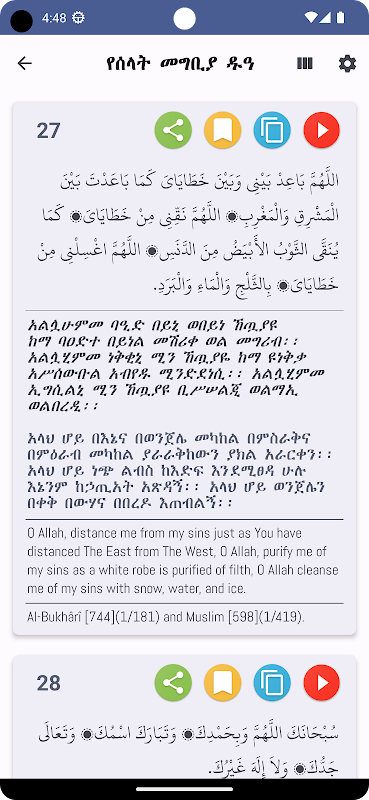 4:48
የሰላት መግቢያ ዱዓ
27
اللَّهُمَّ بَاعِدْ بَيْنِي وَبَيْنَ خَطَايَايَ كَمَا بَاعَدْتَ بَيْنَ
الْمَشْرِقِ وَالْمَغْرِبِ۞ اللَّهُمَّ نَقِّنِي مِنْ خَطَايَايَ۞ كَمَا
يُنَقَّى الثَّوْبُ الأَبْيَضُ مِنَ الدَّنَسِ۞ اللَّهُمَّ اغْسِلْنِي مِنْ
خَطَايَايَ۞ بِالثَّلْجِ وَالْمَاءِ وَالْبَرَدِ.
አልሏሁምመ ባዒድ በይኒ ወበይነ ኸጧያዩ
ከማ ባዐድተ በይነል መሽሪቀ ወል መግሪብ፡፡
አልሏሂምመ ነቅቂኒ ሚን ኸጧያዬ ከማ ዩነቅቃ
አሥሰውቡል አብየዱ ሚንድደነሲ፡፡ አልሏሂምመ
ኢግሲልኒ ሚን ኸጧያዩ ቢሥሠልጂ ወልማኢ
ወልበረዲ፡፡
አላህ ሆይ በእኔና በወንጀሌ መካከል በምስራቅና
በምዕራብ መካከል ያራራቅከውን ያክል አራርቀን፡፡
አላህ ሆይ ነጭ ልብስ ከእድፍ እንደሚፀዳ ሁሉ
እኔንም ከኃጢአት አጽዳኝ፡፡ አላህ ሆይ ወንጀሌን
በቀቅ በውሃና በበረዶ እጠብልኝ፡፡
O Allah, distance me from my sins just as You have
distanced The East from The West, O Allah, purify me of
my sins as a white robe is purified of filth, O Allah cleanse
me of my sins with snow, water, and ice.
Al-Bukhârî [744](1/181) and Muslim [598](1/419).
28
سُبْحَانَكَ اللَّهُمَّ وَبِحَمْدِكَ۞ وَتَبَارَكَ اسْمُكَ۞ وَتَعَالَى
جَدُّكَ۞ وَلاَ إِلَهَ غَيْرُكَ.